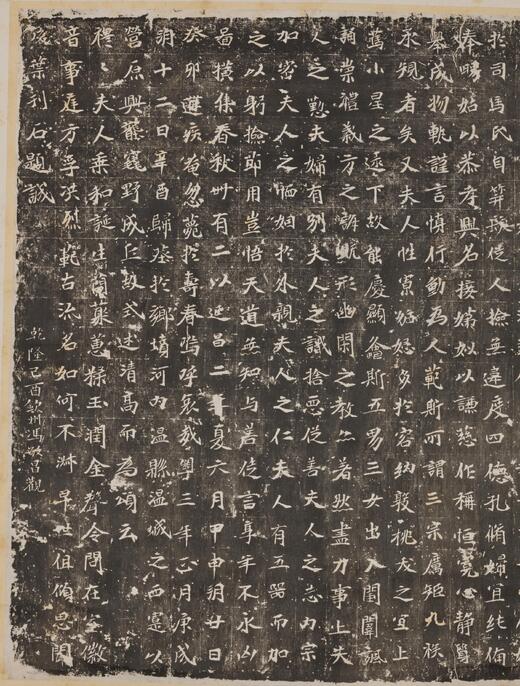 於司馬氏自笄發從人撿無違度四德孔脩婦宜純備
奉舅姑以恭孝興名接娣姒以謙慈作稱恒寬心靜質
舉成物軌謹言慎行動為人範斯所謂三宗厲矩九族
承規者矣又夫人性寡妬忌多於容納敦桃夭之宜上
篤小星之逮下故能慶顯螽斯五男三女出入閨闈諷
誦崇禮義方之誨既形幽閑之教亦著然盡力事上夫
人之懃夫婦有別夫人之識捨惡從善夫人之志內宗
加密夫人之恤姻於外親夫人之仁夫人有五器而加
之以躬撿節用豈悟天道無知与善徒言享年不永凶
圖橫集春秋卌有二以延昌二年夏六月甲申朔廿日
癸卯遘疾奄忽薨於壽春嗚呼哀哉粵三年正月庚戌
朔十二日辛酉歸葬於鄉墳河內溫縣溫城之西靈以
營原興壟窺野成丘故式述清高而為頌云
穆〻夫人乘和誕生蘭泉蕙糅玉潤金聲令問在室徽
音事庭方孚洪烈範古流名如何不淑早世徂傾思聞
後葉刊石題誡
乾隆己酉欽州馮敏昌觀